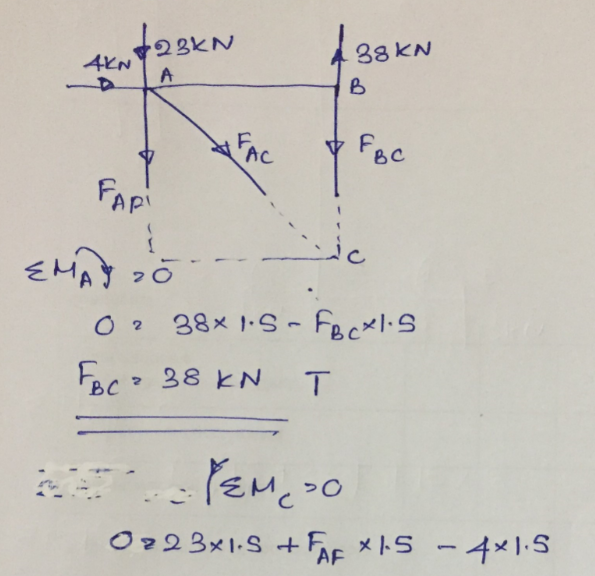 23KN
38KN
4KN
A
B
F_AC
F_BC
F_AP
C
ΣM_A = 0
0 = 38×1.5 - F_BC×1.5
F_BC = 38 KN T
ΣM_C = 0
0 = 23×1.5 + F_AF ×1.5 - 4×1.5